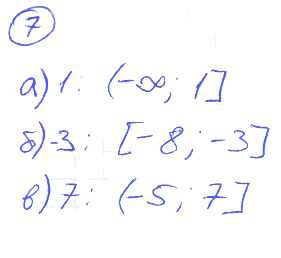 7
а) 1: (-∞; 1]
б) -3: [-8; -3]
в) 7: (-5; 7]